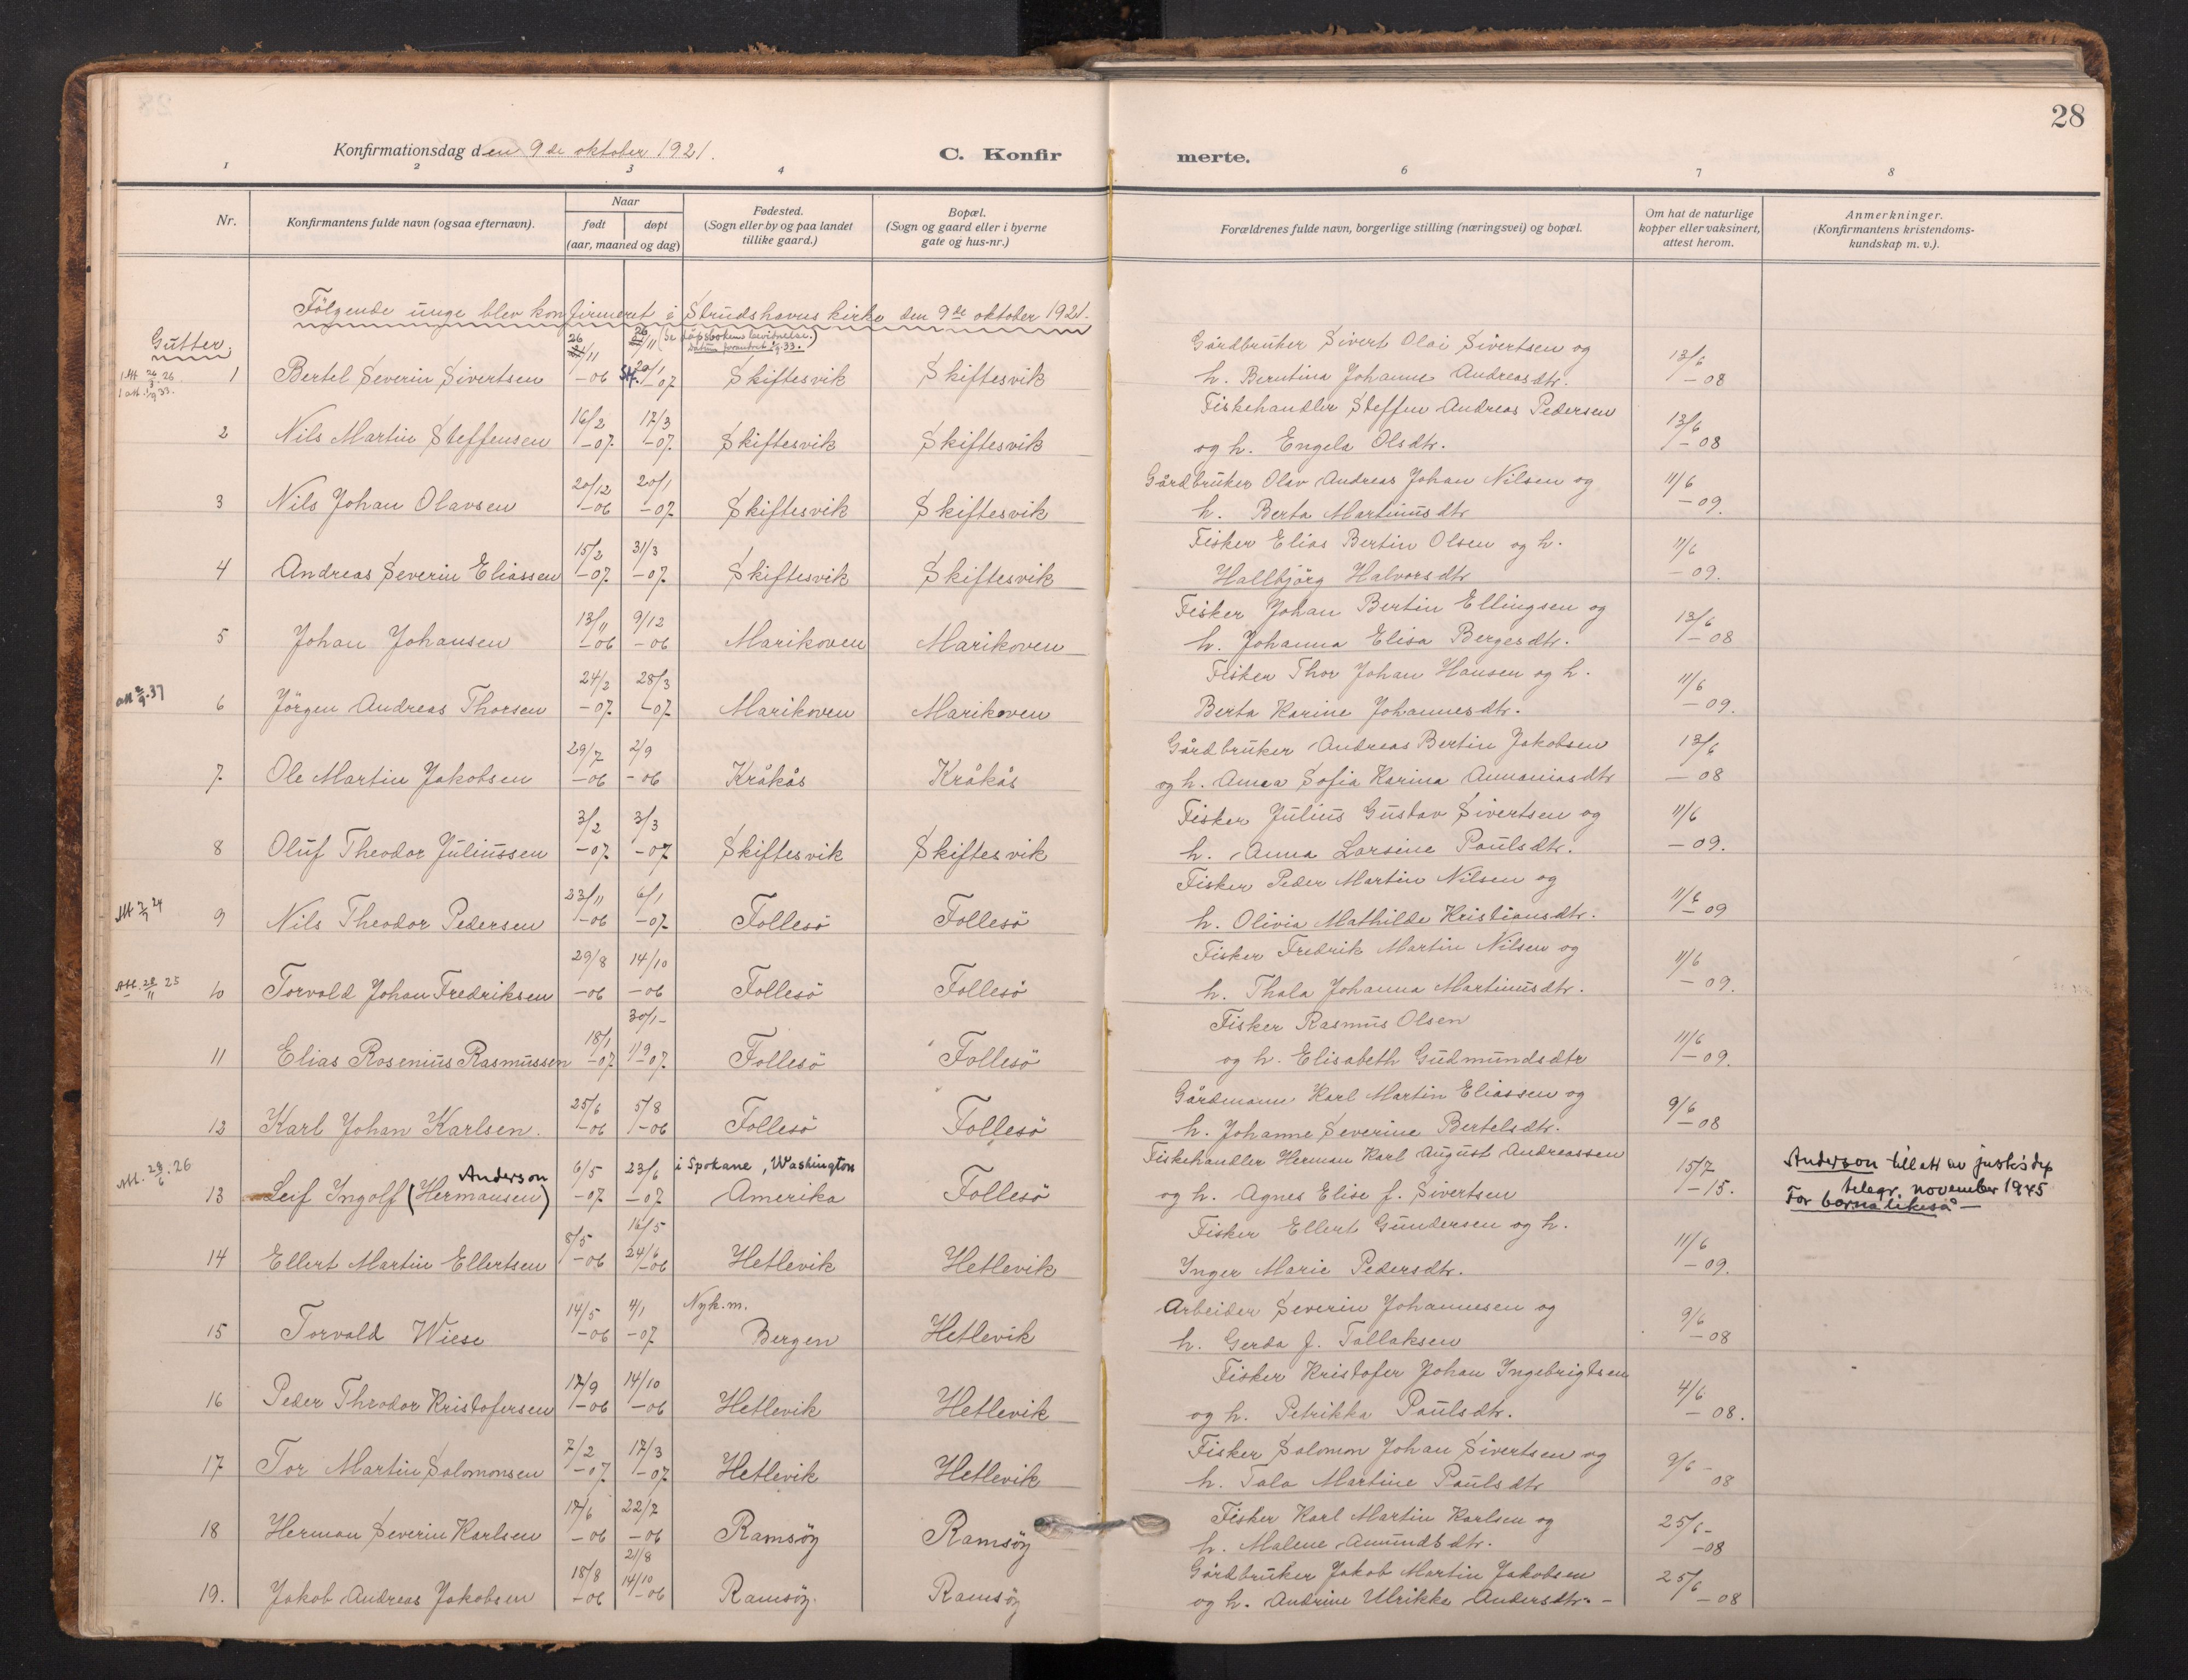 28
Konfirmationsdag den 9de oktober 1921.
C. Konfirmerte.
1 2 3 4 6 7 8
Nr.
Konfirmantens fulde navn (ogsaa efternavn).
Naar
født døpt
(aar, maaned og dag)
Fødested.
(Sogn eller by og paa landet
tillike gaard.)
Bopæl.
(Sogn og gaard eller i byerne
gate og hus-nr.)
Forældrenes fulde navn, borgerlige stilling (næringsvei) og bopæl.
Om hat de naturlige
kopper eller vaksinert,
attest herom.
Anmerkninger.
(Konfirmantens kristendoms-
kundskap m. v.).
Følgende unge blev konfirmeret i Strudshavns kirke den 9de oktober 1921.
Gutter.
1 Bertel Severin Sivertsen 26/11 -06 20/1 -07 Skiftesvik Skiftesvik Gårdbruker Sivert Olai Sivertsen og
h. Berntina Johanne Andreasdtr. 13/6 -08
2 Nils Martin Steffensen 16/2 -07. 17/3 -07. Skiftesvik Skiftesvik Fiskehandler Steffen Andreas Pedersen
og h. Engela Olsdtr. 13/6 -08
3 Nils Johan Olavsen 20/12 -06 20/1 -07. Skiftesvik Skiftesvik Gårdbruker Olav Andreas Johan Nilsen og
h. Berta Martinusdtr 11/6 -09.
4 Andreas Severin Eliassen 15/2 -07. 31/3 -07. Skiftesvik Skiftesvik Fisker Elias Bertin Olsen og h.
Hallbjörg Halvorsdtr 11/6 -09.
5 Johan Johansen 13/11 -06 9/12 -06 Marikoven Marikoven Fisker Johan Bertin Ellingsen og
h. Johanna Elisa Bergesdtr. 13/6 -08
att 2/9.37
6 Jörgen Andreas Thorsen 24/2 -07. 28/3 -07. Marikoven Marikoven Fisker Thor Johan Hansen og h.
Berta Karine Johannesdtr. 11/6 -09.
7. Ole Martin Jakobsen 29/7 -06 2/9 -06 Kråkås Kråkås Gårdbruker Andreas Bertin Jakobsen
og h. Anna Sofia Karina Annaniasdtr 13/6 -08
8 Oluf Theodor Juliussen 3/2 -07. 3/3 -07 Skiftesvik Skiftesvik Fisker Julius Gustav Sivertsen og
h. Anna Larsine Paulsdtr. 11/6 -09.
9 Nils Theodor Pedersen 23/11 -06 6/1 -07. Follesö Follesö Fisker Peder Martin Nilsen og
h. Olivia Mathilde Kristiansdtr. 11/6 -09
Att. 28/11 25
10 Torvald Johan Fredriksen 29/8 -06 14/10 -06 Follesö Follesö Fisker Fredrik Martin Nilsen og
h. Thala Johanna Martinusdtr. 11/6 -09.
11 Elias Rosenius Rasmussen 18/1 -07. 30/1- -07. Follesö Follesö Fisker Rasmus Olsen
og h. Elisabeth Gudmundsdtr 11/6 -09.
12 Karl Johan Karlsen. 25/6 -06 5/8 -06 Follesö Follesö Gårdmann Karl Martin Eliassen og
h. Johanne Severine Bertelsdtr. 9/6 -08
Att. 28/6.26
13 Leif Ingolf (Hermansen) Anderson 6/5 -07. 23/6 -07 i Spokane, Washington
Amerika Follesö Fiskehandler Herman Karl August Andreassen
og h. Agnes Elise f. Sivertsen 15/7 -15. Anderson till att av justisdep
telegr. november 1945
For borna likeså -
14 Ellert Martin Ellertsen 8/5 -06 16/5 24/6 -06 Hetlevik Hetlevik Fisker Ellert Gundersen og h.
Inger Marie Pedersdtr. 11/6 -09.
15 Torvald Wiese 14/5 -06 4/1 -07 Nyk.m.
Bergen Hetlevik Arbeider Severin Johannesen og
h. Gerda f. Tollaksen 9/6 -08
16 Peder Theodor Kristofersen 17/9 -06 14/10 -06 Hetlevik Hetlevik Fisker Kristofer Johan Ingebrigtsen
og h. Petrikka Paulsdtr. 4/6 -08.
17 Tor Martin Salomonsen 7/2 -07. 17/3 -07 Hetlevik Hetlevik Fisker Salomon Johan Sivertsen og
h. Tala Martine Paulsdtr 9/6- 08
18 Herman Severin Karlsen 17/6 -06 22/7 -06 Ramsöy Ramsöy Fisker Karl Martin Karlsen og
h. Malene Amundsdtr. 25/6- -08
19. Jakob Andreas Jakobsen 18/8 -06 21/8 14/10 -06 Ramsöy. Ramsöy Gårdbruker Jakob Martin Jakobsen
og h. Andrine Ulrikke Andersdtr. - 25/6 -08